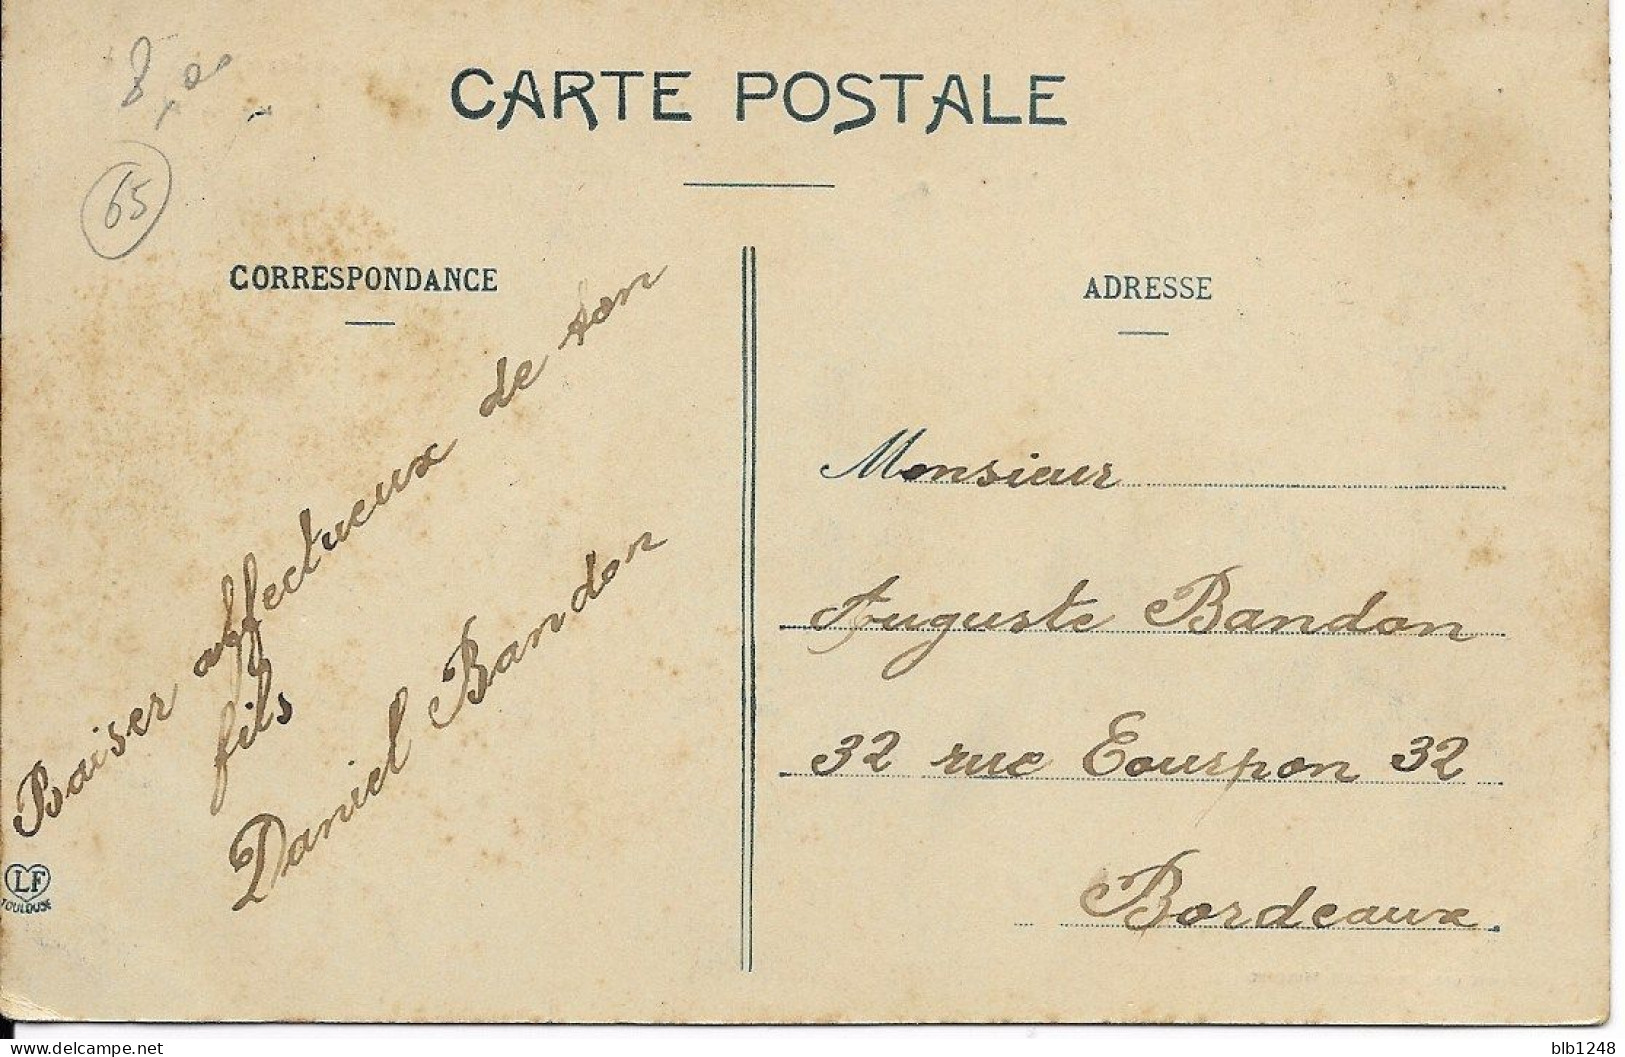 8,00
65
CARTE POSTALE
CORRESPONDANCE
Baiser affectueux de ton
fils
Daniel Bandon
LF
TOULOUSE
ADRESSE
Monsieur
Auguste Bandon
32 rue Eourpon 32
Bordeaux
delcampe.net
blb1248